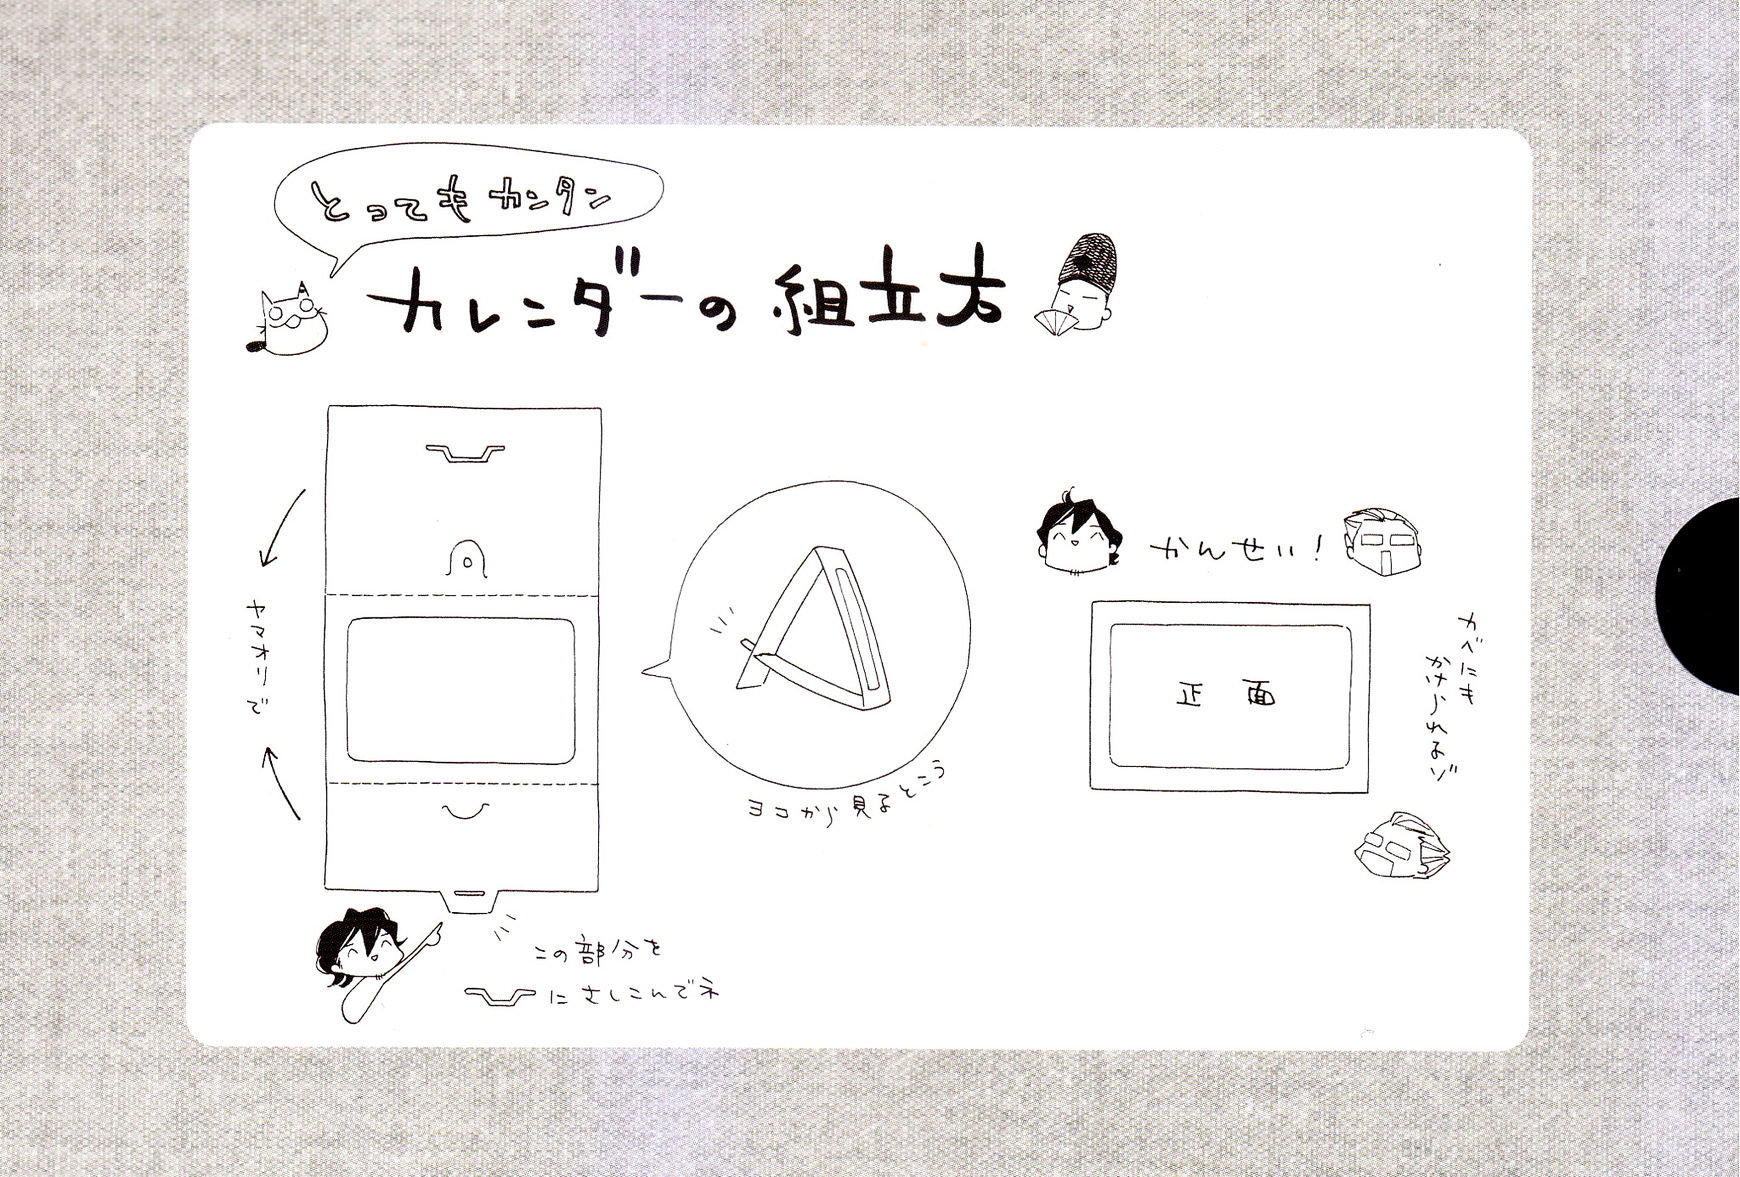 とってもカンタン
カレンダーの組立方
ヤマオリで
ヨコから見るところ
かんせい!
正面
カベにも
かけられるゾ
この部分を
にさしこんでネ